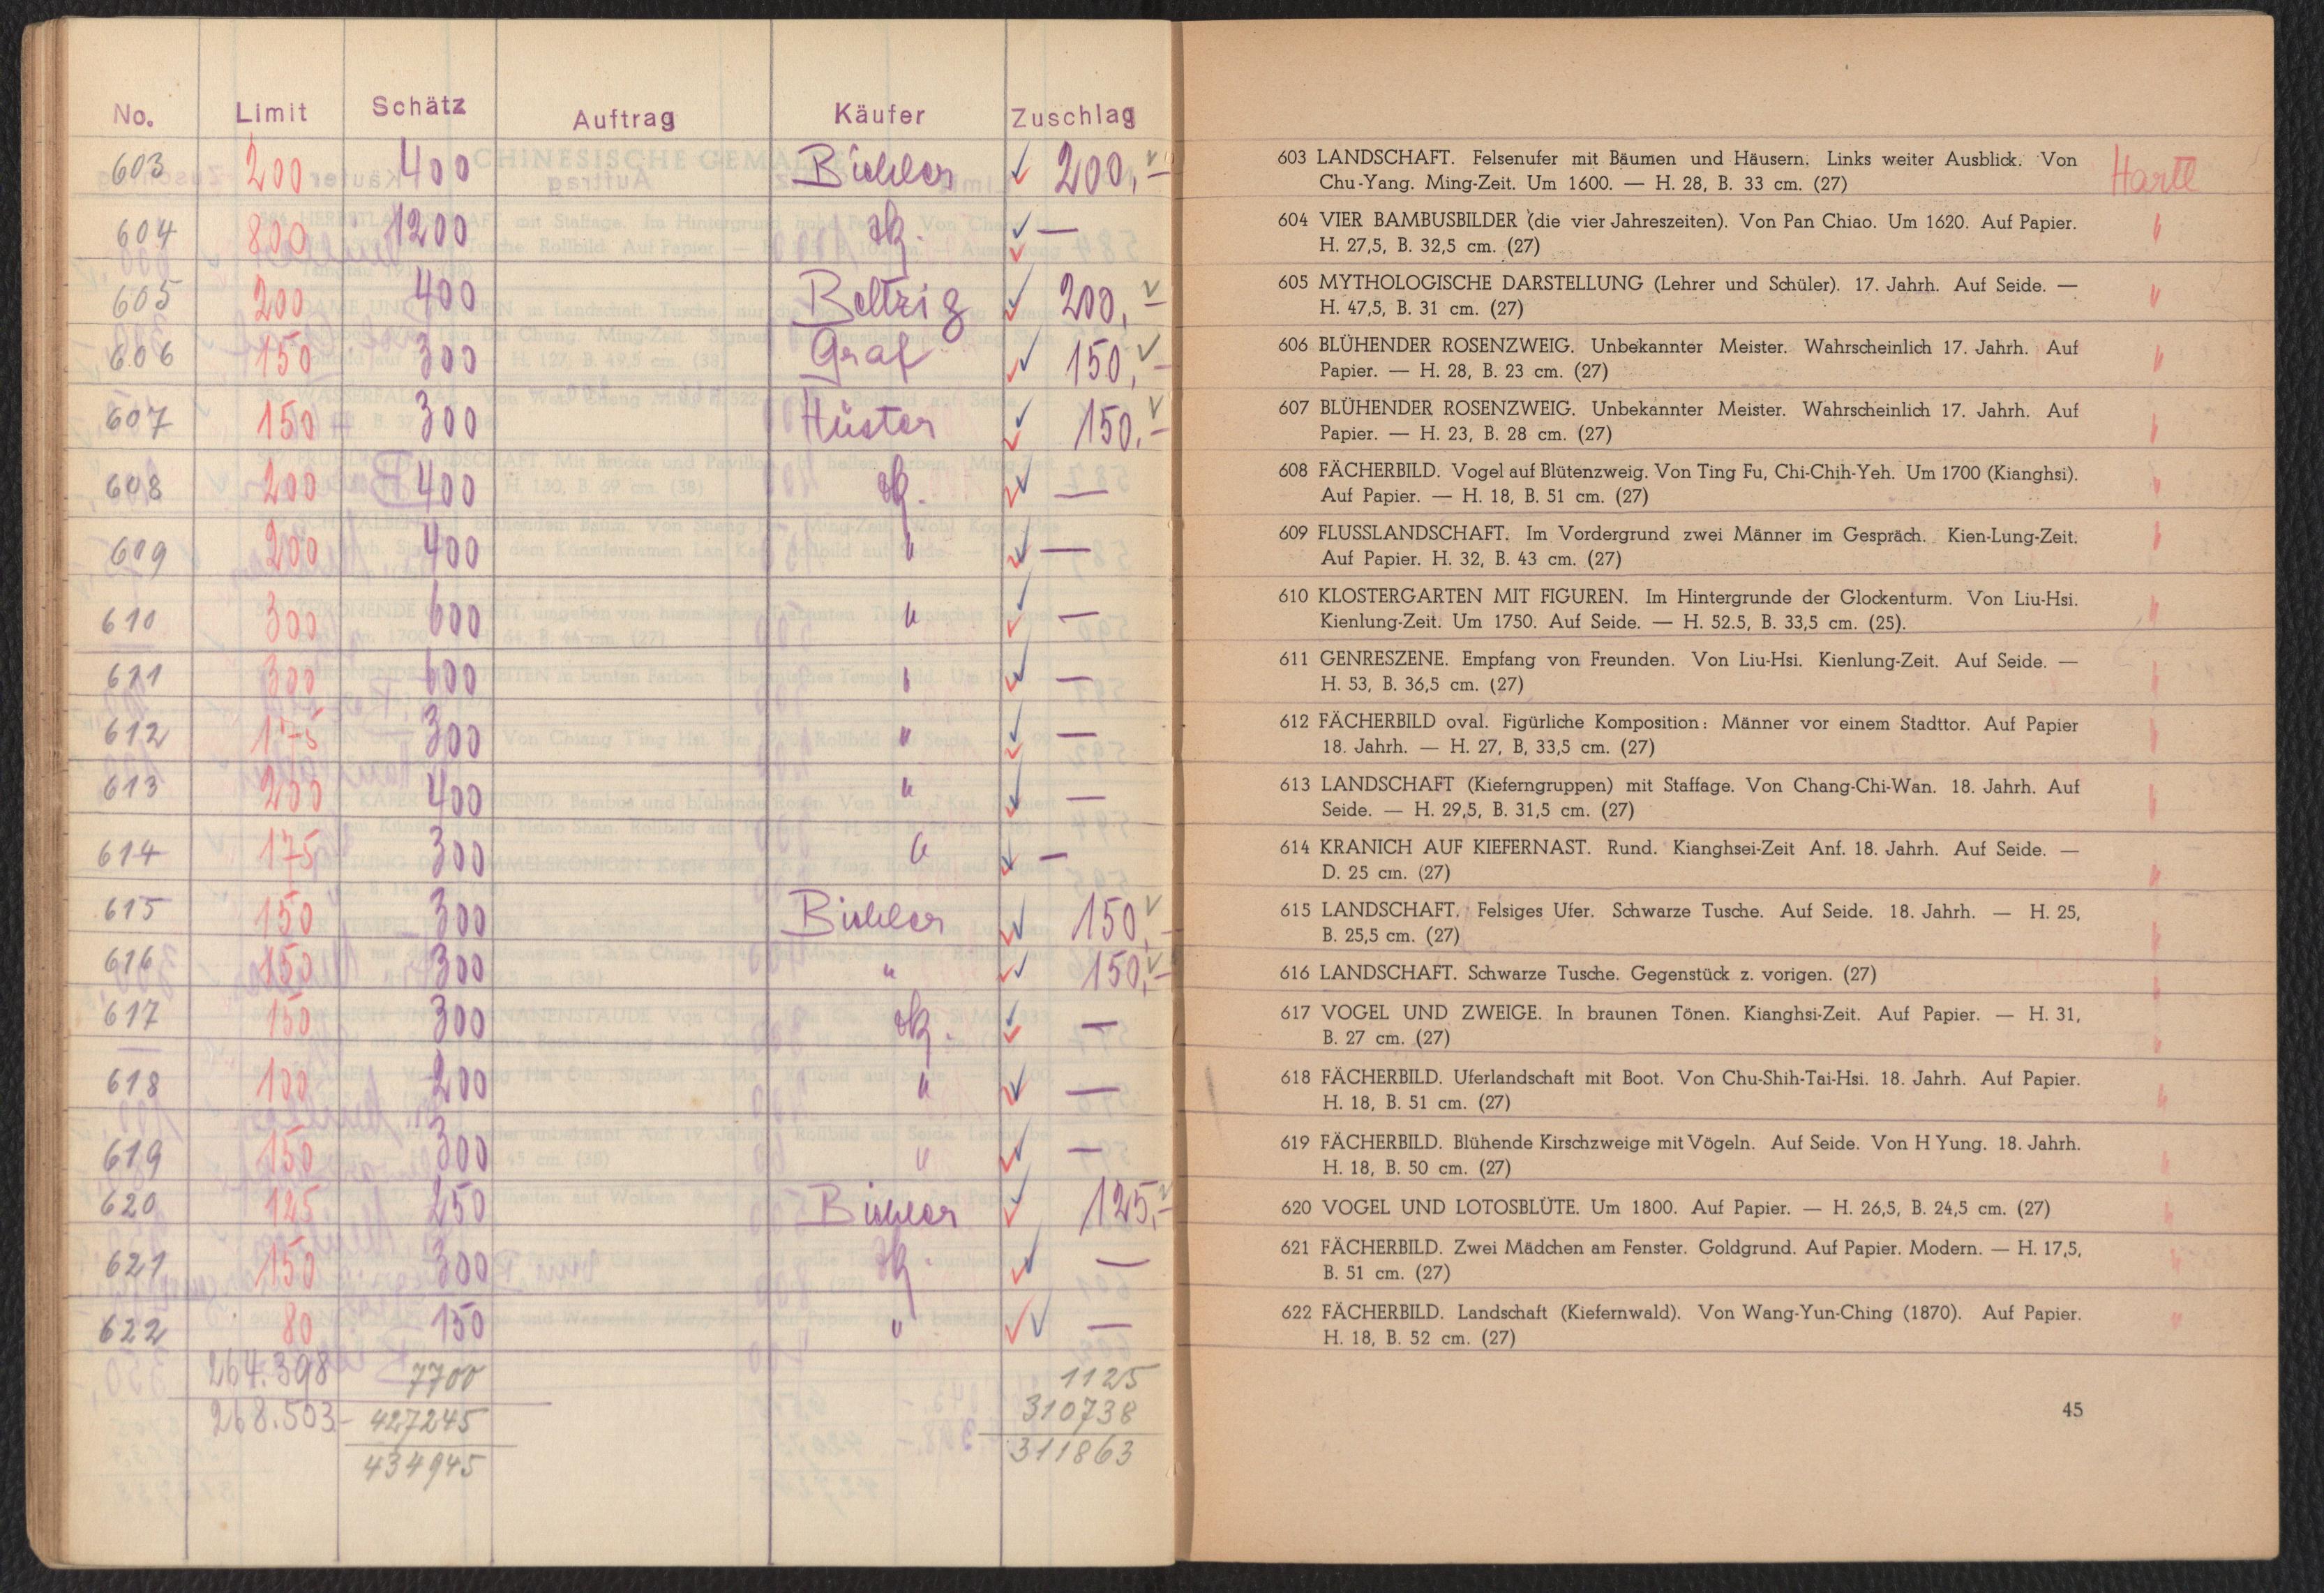 No. Limit Schätz Auftrag Käufer Zuschlag
603 200 400 Bühler 200,-
604 800 1200 zk. —
605 200 400 Beltzig 200,-
606 150 300 Graf 150,-
607 150 300 Hüster 150,-
608 200 400 zk. —
609 200 400 " —
610 300 600 " —
611 300 600 " —
612 175 300 " —
613 200 400 " —
614 175 300 " —
615 150 300 Bühler 150,-
616 150 300 " 150,-
617 150 300 zk. —
618 100 200 " —
619 150 300 " —
620 125 250 Bühler 125,-
621 150 300 zk. —
622 80 150 " —
264.398 7700 1125
268.503- 427245 310738
434945 311863
603 LANDSCHAFT. Felsenufer mit Bäumen und Häusern. Links weiter Ausblick. Von Hartl
Chu-Yang. Ming-Zeit. Um 1600. — H. 28, B. 33 cm. (27)
604 VIER BAMBUSBILDER (die vier Jahreszeiten). Von Pan Chiao. Um 1620. Auf Papier. "
H. 27,5, B. 32,5 cm. (27)
605 MYTHOLOGISCHE DARSTELLUNG (Lehrer und Schüler). 17. Jahrh. Auf Seide. — "
H. 47,5, B. 31 cm. (27)
606 BLÜHENDER ROSENZWEIG. Unbekannter Meister. Wahrscheinlich 17. Jahrh. Auf "
Papier. — H. 28, B. 23 cm. (27)
607 BLÜHENDER ROSENZWEIG. Unbekannter Meister. Wahrscheinlich 17. Jahrh. Auf "
Papier. — H. 23, B. 28 cm. (27)
608 FÄCHERBILD. Vogel auf Blütenzweig. Von Ting Fu, Chi-Chih-Yeh. Um 1700 (Kianghsi). "
Auf Papier. — H. 18, B. 51 cm. (27)
609 FLUSSLANDSCHAFT. Im Vordergrund zwei Männer im Gespräch. Kien-Lung-Zeit. "
Auf Papier. H. 32, B. 43 cm. (27)
610 KLOSTERGARTEN MIT FIGUREN. Im Hintergrunde der Glockenturm. Von Liu-Hsi. "
Kienlung-Zeit. Um 1750. Auf Seide. — H. 52.5, B. 33,5 cm. (25).
611 GENRESZENE. Empfang von Freunden. Von Liu-Hsi. Kienlung-Zeit. Auf Seide. — "
H. 53, B. 36,5 cm. (27)
612 FÄCHERBILD oval. Figürliche Komposition: Männer vor einem Stadttor. Auf Papier "
18. Jahrh. — H. 27, B, 33,5 cm. (27)
613 LANDSCHAFT (Kieferngruppen) mit Staffage. Von Chang-Chi-Wan. 18. Jahrh. Auf "
Seide. — H. 29,5, B. 31,5 cm. (27)
614 KRANICH AUF KIEFERNAST. Rund. Kianghsei-Zeit Anf. 18. Jahrh. Auf Seide. — "
D. 25 cm. (27)
615 LANDSCHAFT. Felsiges Ufer. Schwarze Tusche. Auf Seide. 18. Jahrh. — H. 25, "
B. 25,5 cm. (27)
616 LANDSCHAFT. Schwarze Tusche. Gegenstück z. vorigen. (27) "
617 VOGEL UND ZWEIGE. In braunen Tönen. Kianghsi-Zeit. Auf Papier. — H. 31, "
B. 27 cm. (27)
618 FÄCHERBILD. Uferlandschaft mit Boot. Von Chu-Shih-Tai-Hsi. 18. Jahrh. Auf Papier. "
H. 18, B. 51 cm. (27)
619 FÄCHERBILD. Blühende Kirschzweige mit Vögeln. Auf Seide. Von H Yung. 18. Jahrh. "
H. 18, B. 50 cm. (27)
620 VOGEL UND LOTOSBLÜTE. Um 1800. Auf Papier. — H. 26,5, B. 24,5 cm. (27) "
621 FÄCHERBILD. Zwei Mädchen am Fenster. Goldgrund. Auf Papier. Modern. — H. 17,5, "
B. 51 cm. (27)
622 FÄCHERBILD. Landschaft (Kiefernwald). Von Wang-Yun-Ching (1870). Auf Papier. "
H. 18, B. 52 cm. (27)
45